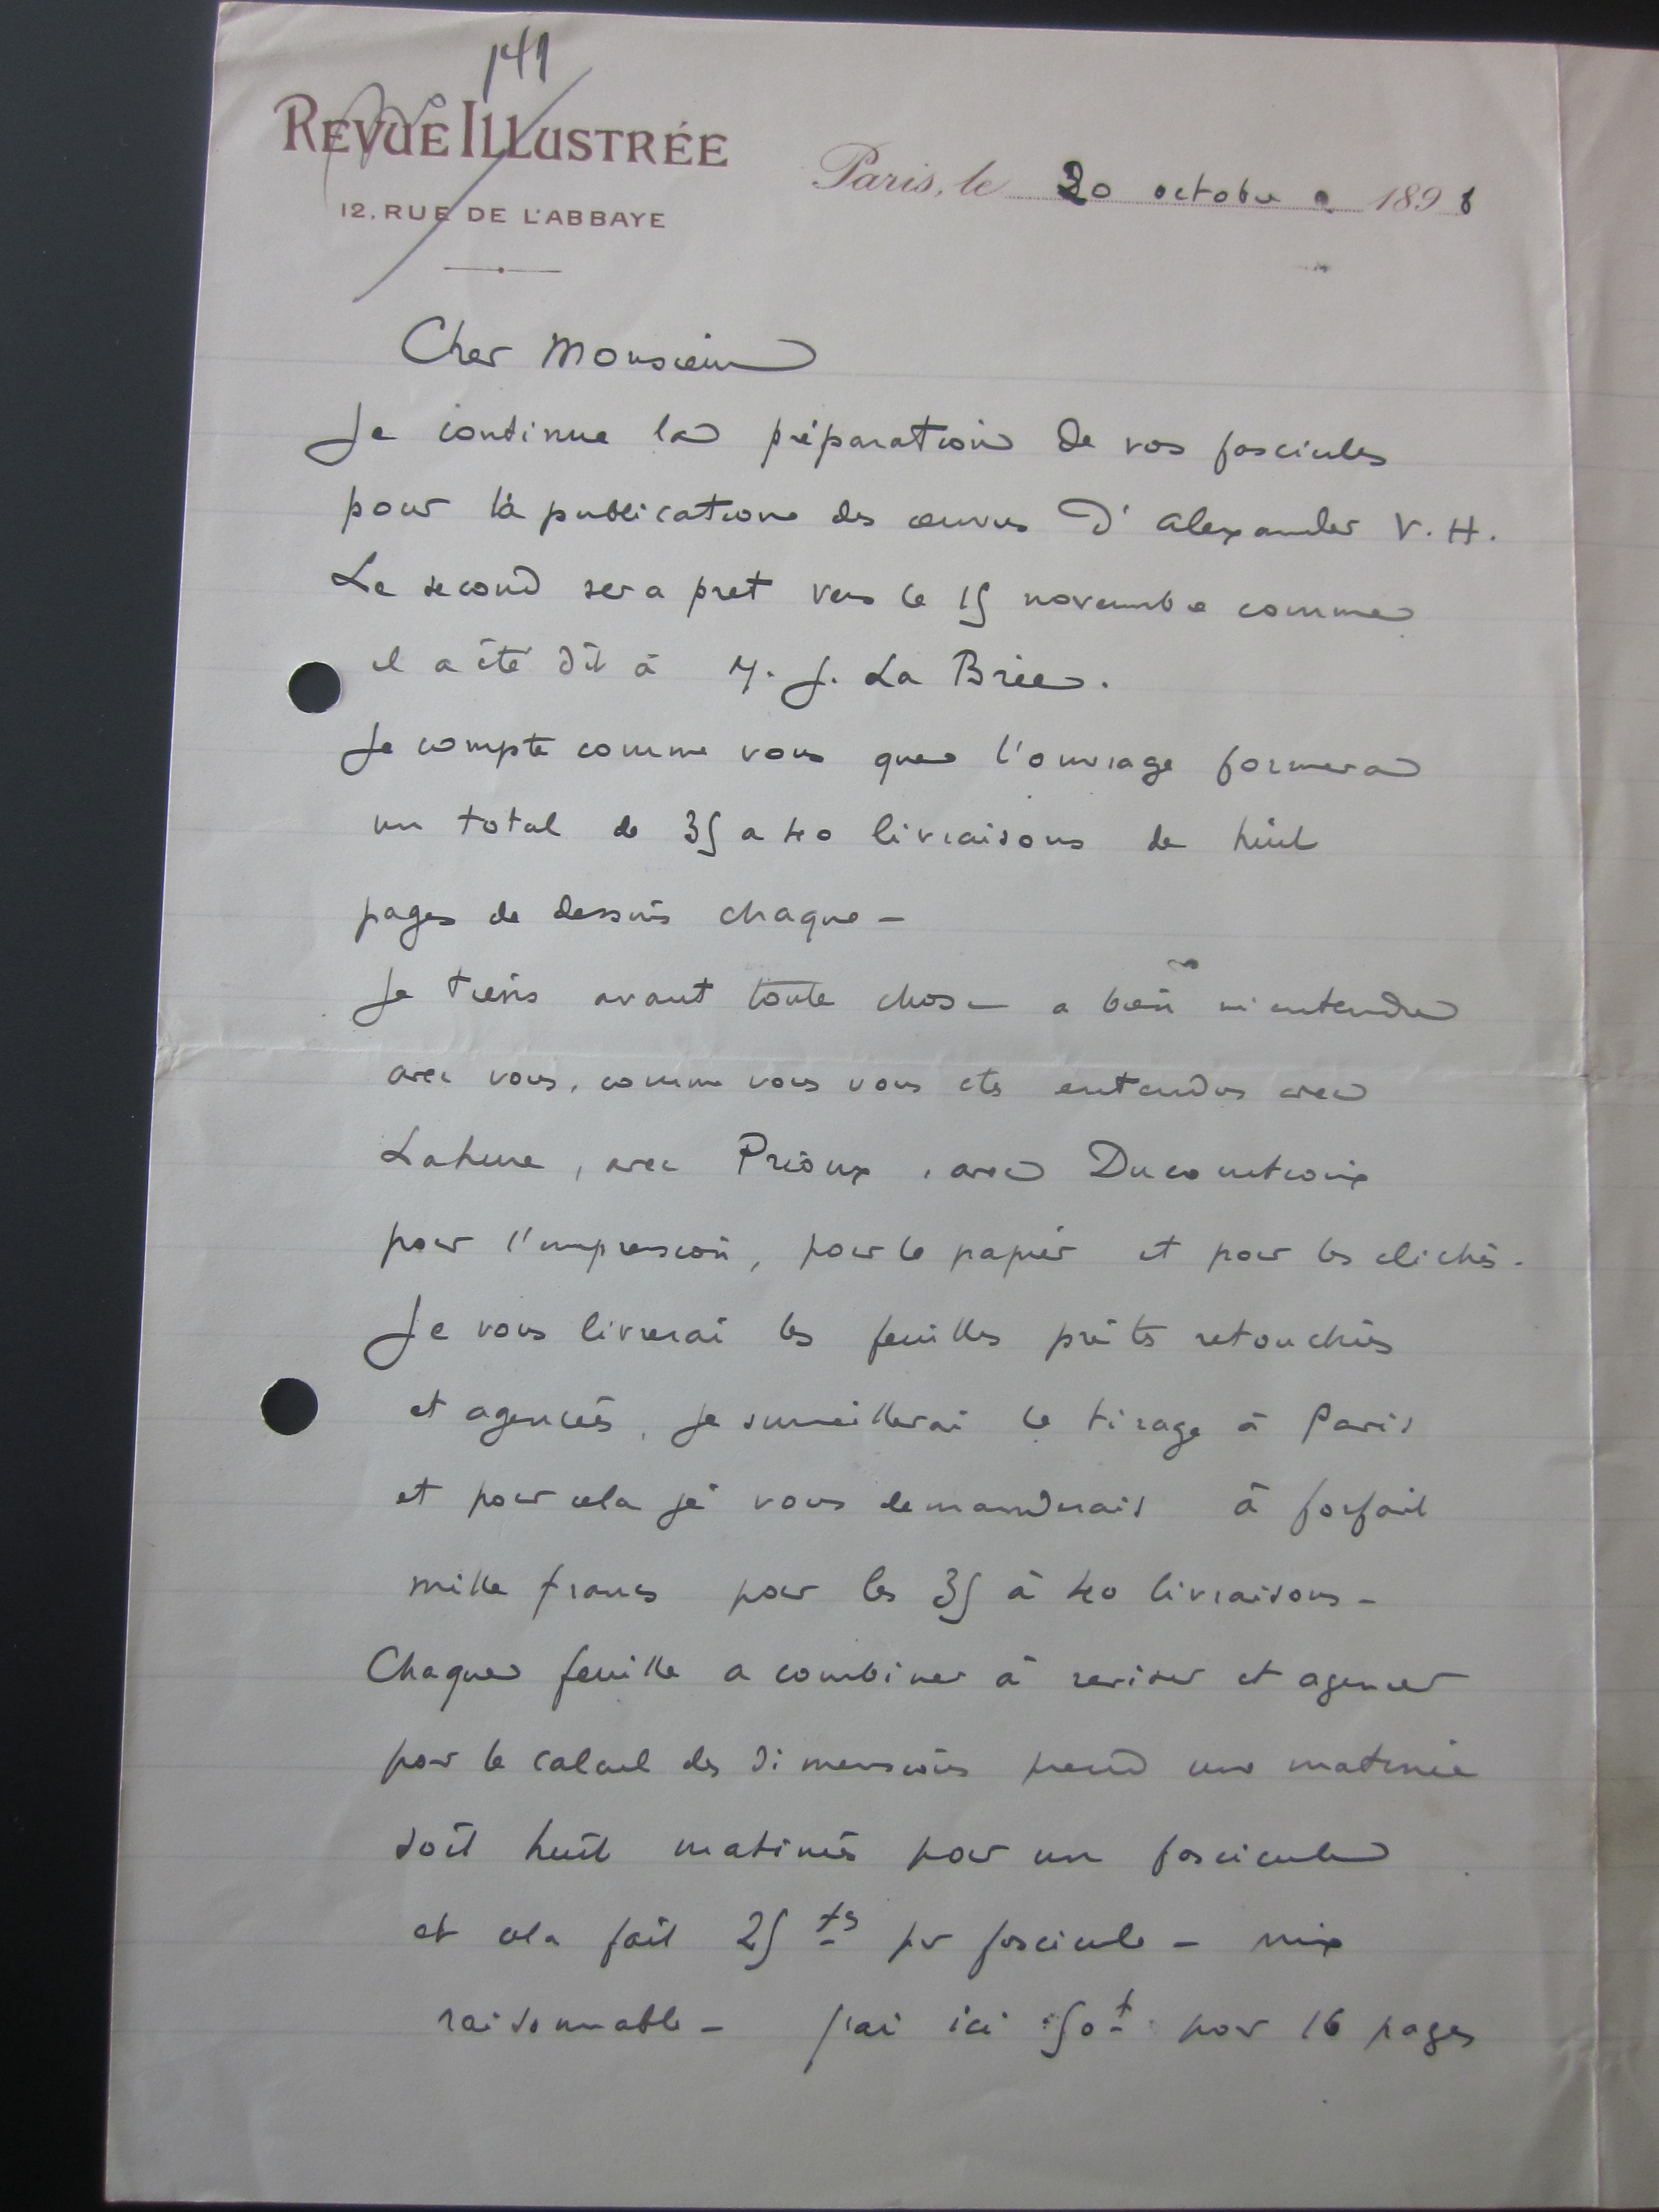 141
REVUE ILLUSTRÉE
12, RUE DE L'ABBAYE
Paris, le 20 octobre 1898
Cher Monsieur
Je continue la préparation de vos fascicules
pour la publication des œuvres d'Alexander V. H.
Le second sera pret vers le 15 novembre comme
il a été dit à M. J. La Brée.
Je compte comme vous que l'ouvrage formera
un total de 35 a 40 livraisons de huit
pages de dessins chaque -
Je tiens avant toute chose a bien m'entendre
avec vous, comme vous vous etes entendus avec
Lahure, avec Prioux, avec Ducourtioux
pour l'impression, pour le papier et pour les clichés.
Je vous livrerai les feuilles prêtes retouchées
et agencées, je surveillerai le tirage à Paris
et pour cela je vous demanderais à forfait
mille francs pour les 35 à 40 livraisons -
Chaque feuille a combiner à reviser et agencer
pour le calcul des dimensions prend une matinée
soit huit matinés pour un fascicule
et cela fait 25 fs pr fascicule -
raisonnable - j'ai ici 50 f pour 16 pages